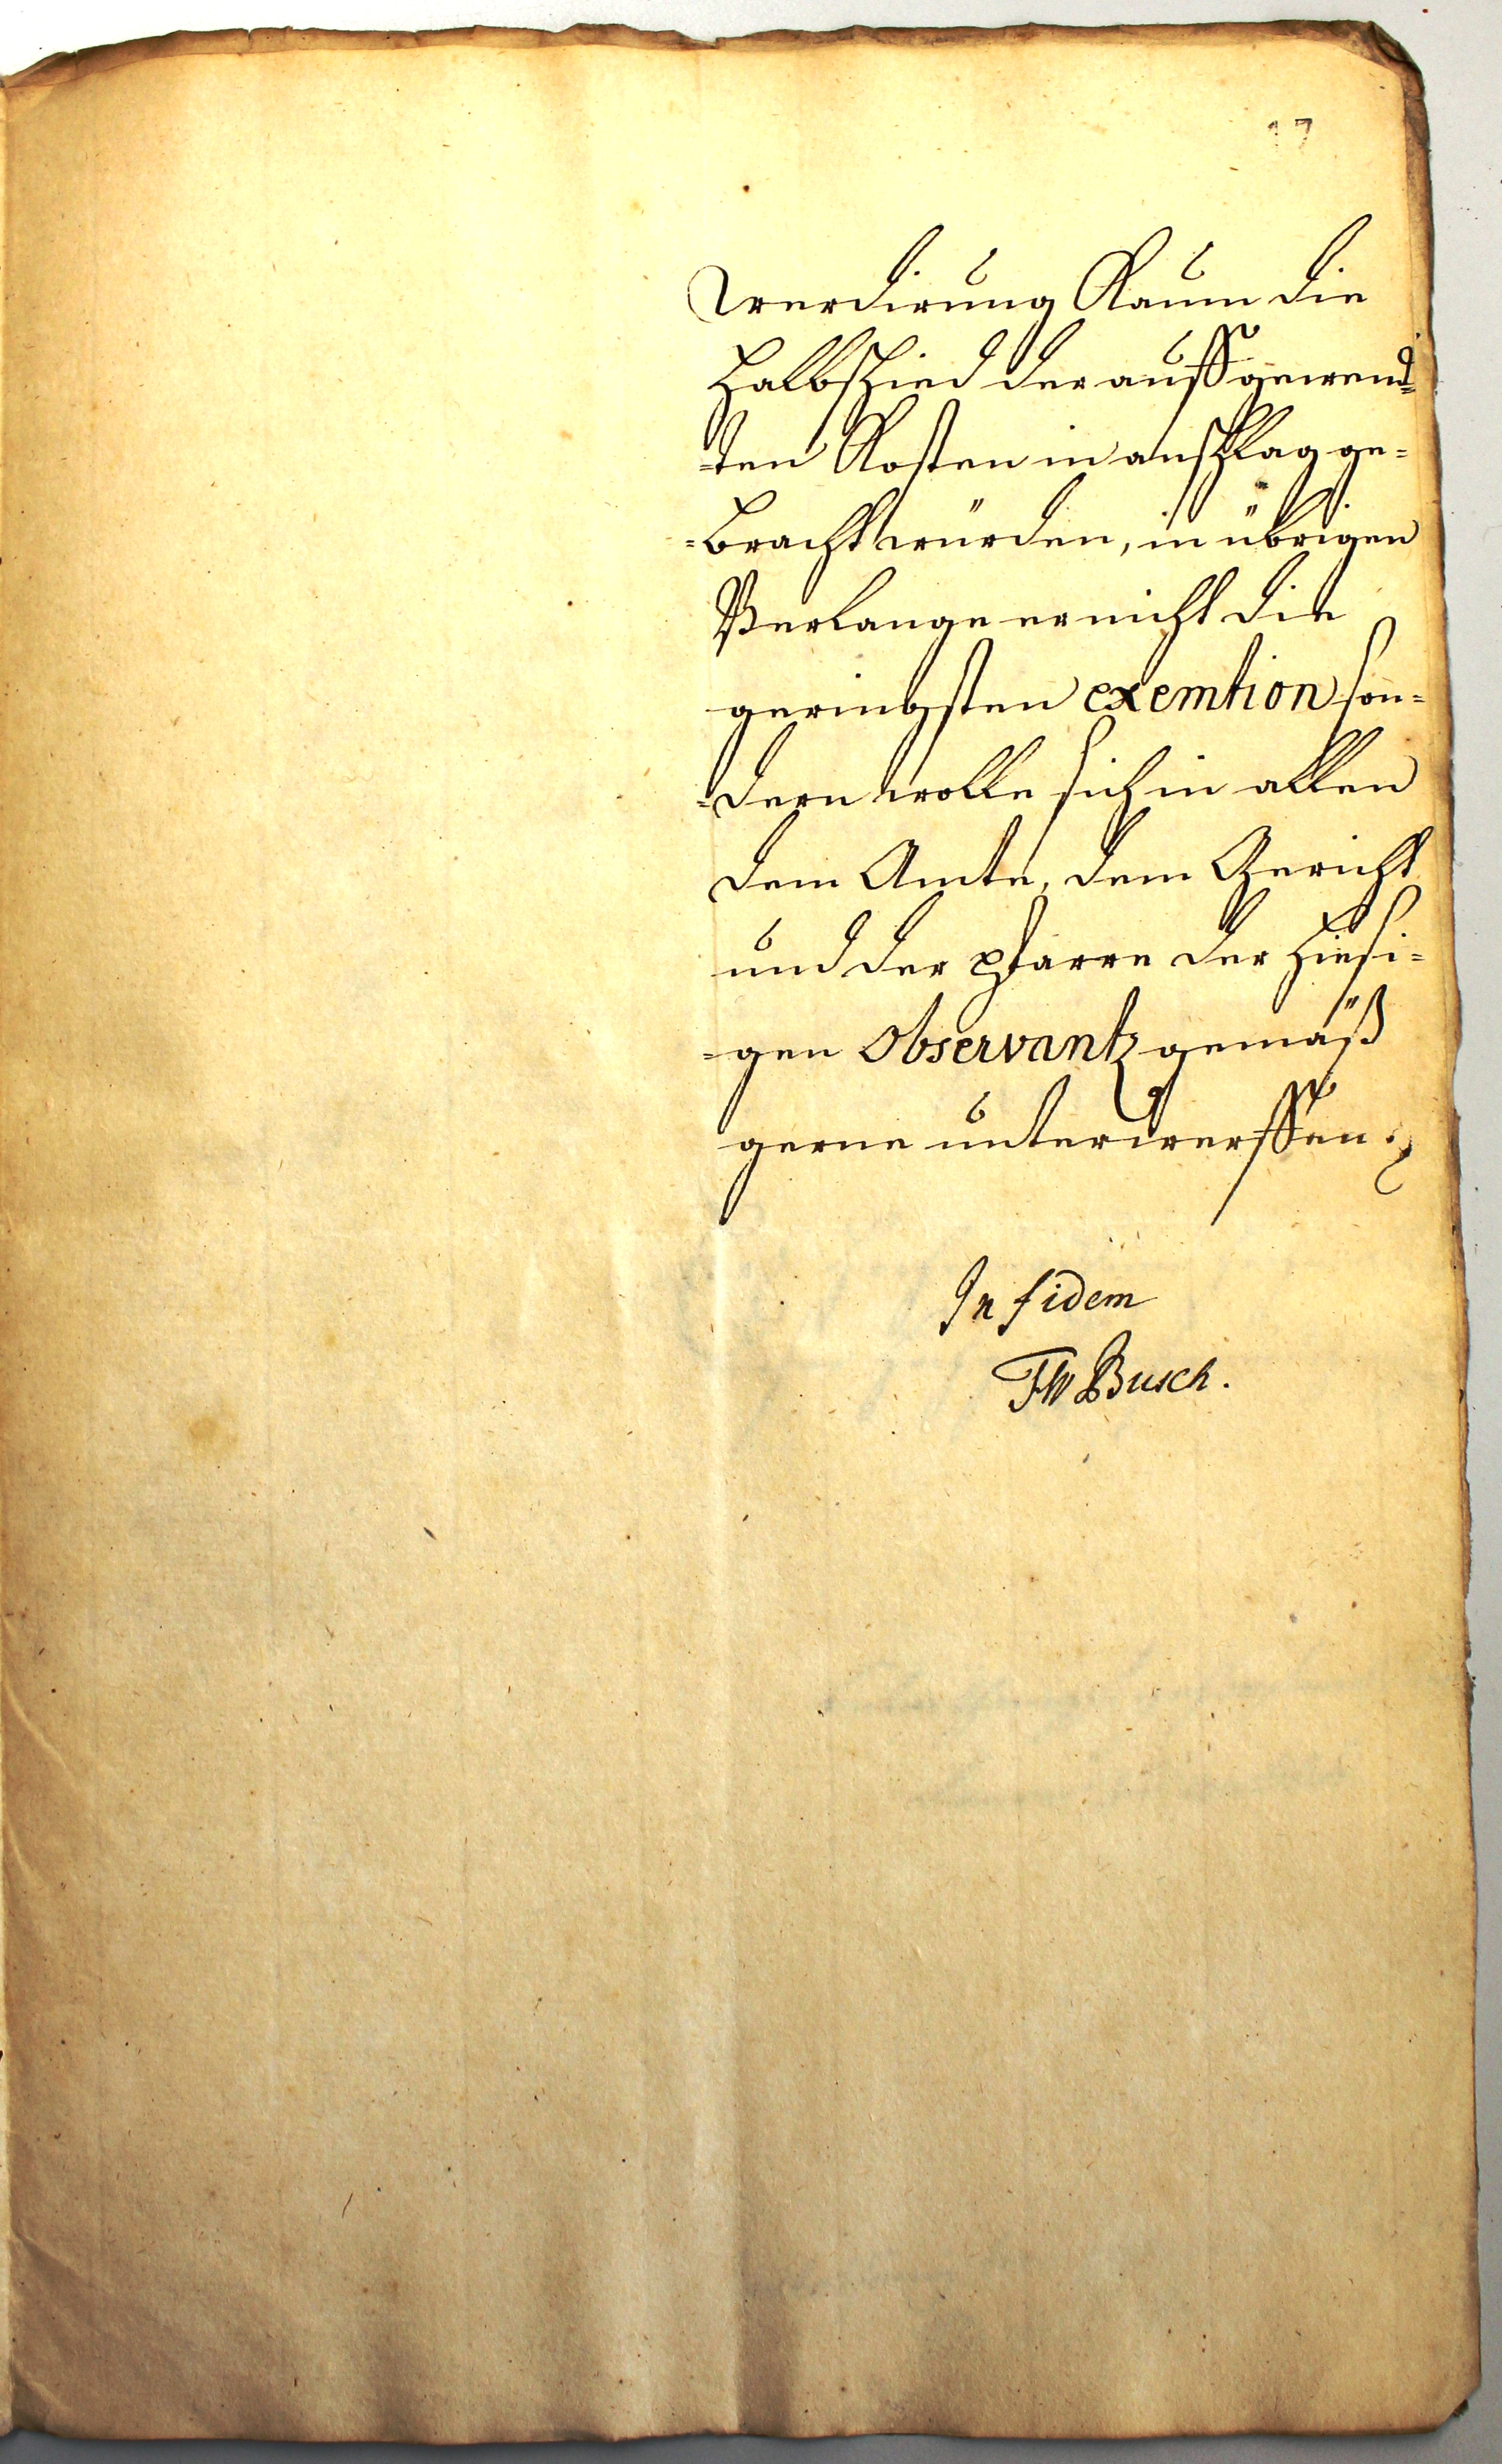 17
Werdirung Kaum die
Halbschied der auffgewend=
=ten Kosten in anschlag ge=
=bracht würden, in übrigen
Verlange er nicht die
geringsten exemtion son=
=dern wolle sich in allen
dem Amte, dem Gericht
und der Pfarre der hiesi=
=gen Observantz gemäß
gerne unterwerffen.
In fidem
FW Busch.